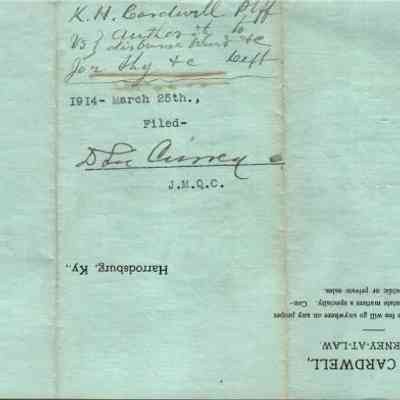 K. H. Cardwell Plff
vs } Authority to
disburse fund &c
Joe Shy &c Deft
1914- March 25th.,
Filed-
J.M.Q.C.
Harrodsburg, Ky.,
CARDWELL,
RNEY-AT-LAW.
fee will go anywhere on any proper
state matters a specialty. Con-
public or private sales.